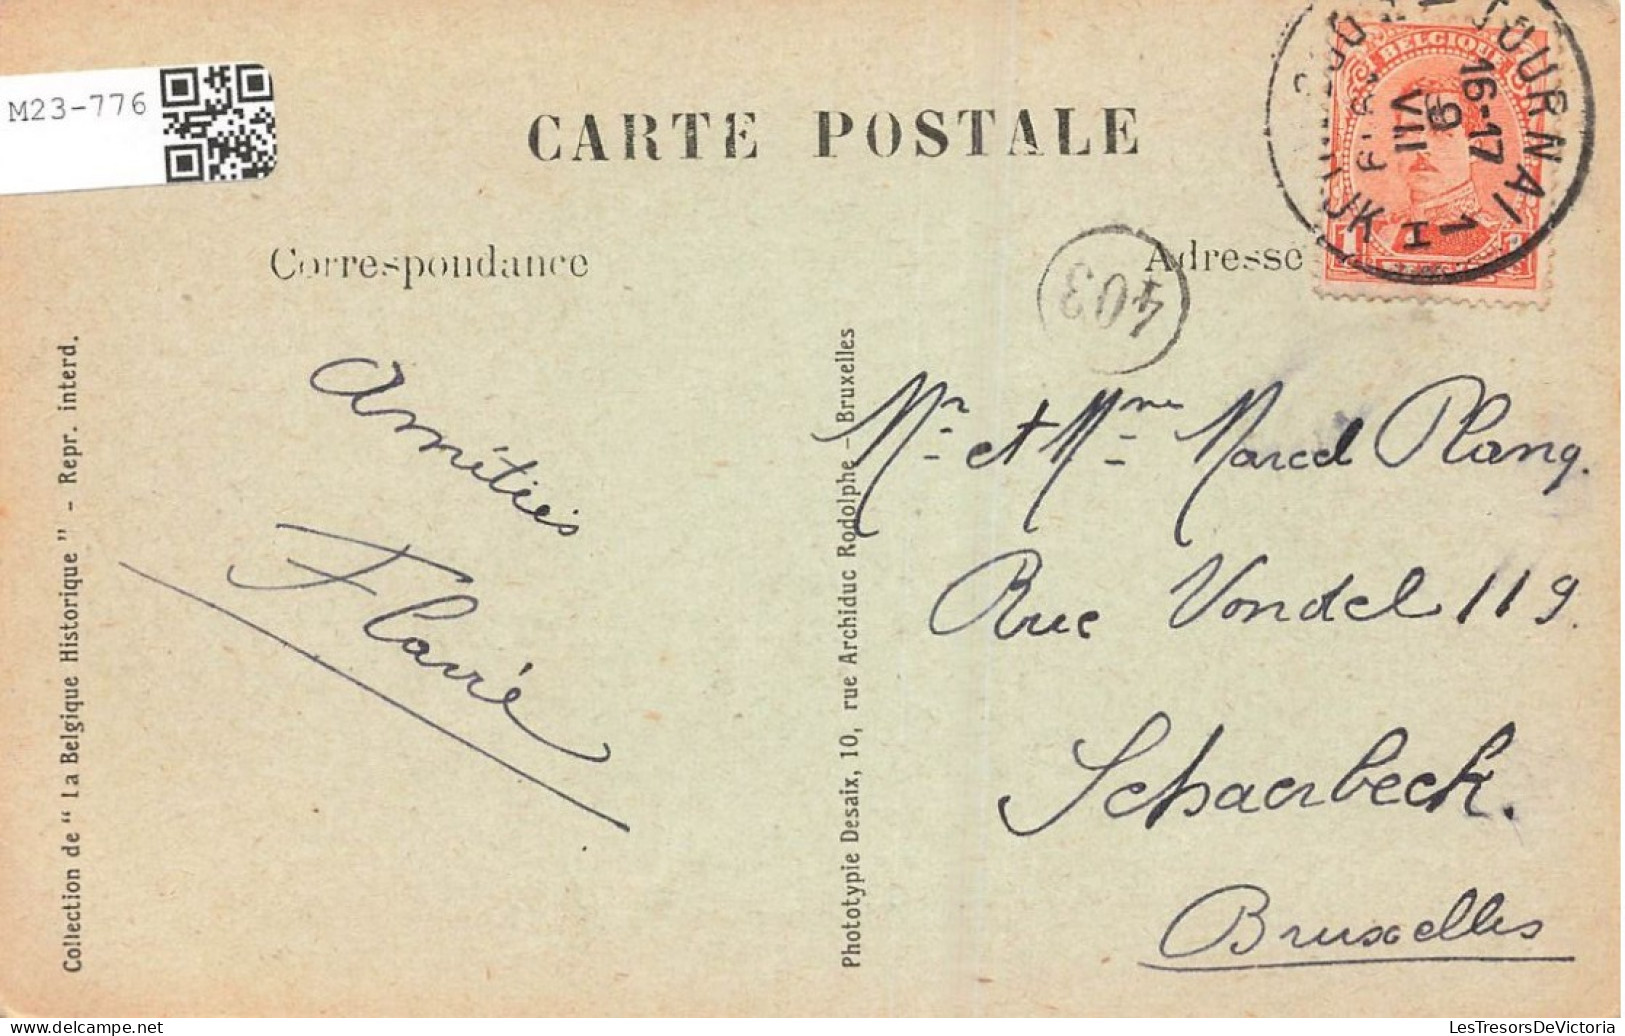 M23-776
CARTE POSTALE
Correspondance
Adresse
BELGIQUE
TOURNAI 1
16-17
9
VIII
403
Amitiés
Flavié
Mr et Mme Marcel Planq.
Rue Vondel 119.
Schaerbeek.
Bruxelles
Collection de " La Belgique Historique " - Repr. interd.
Phototypie Desaix, 10, rue Archiduc Rodolphe - Bruxelles
LesTresorsDeVictoria